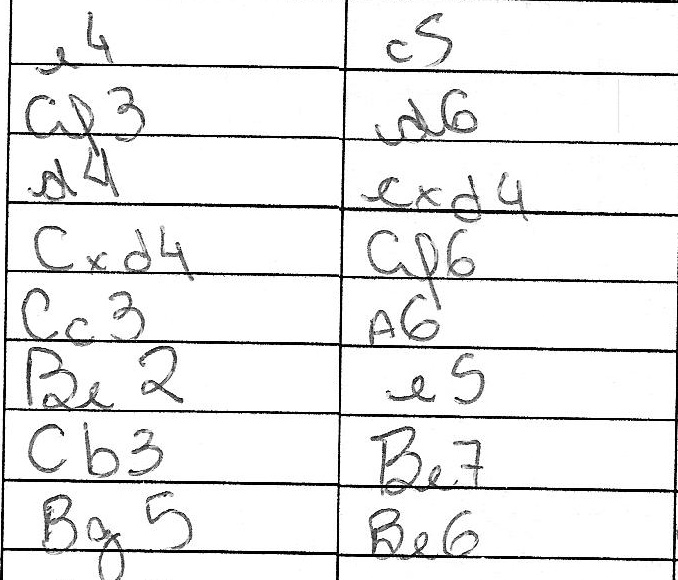 e4 c5
Cf3 d6
d4 cxd4
Cxd4 Cf6
Cc3 A6
Be2 e5
Cb3 Be7
Bg5 Be6